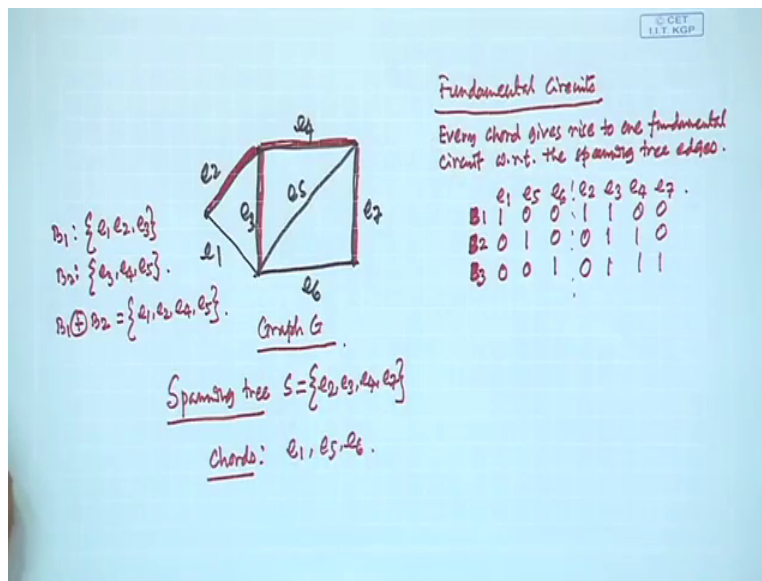 © CET
I.I.T. KGP
Fundamental Circuits
Every chord gives rise to one fundamental
circuit w.r.t. the spanning tree edges.
e1 e5 e6 e2 e3 e4 e7.
B1 1 0 0 1 1 0 0
B2 0 1 0 0 1 1 0
B3 0 0 1 0 1 1 1
e4
e2
e5
e3
e7
e1
e6
B1: {e1, e2, e3}
B2: {e3, e4, e5}.
B1 ⊕ B2 = {e1, e2, e4, e5}.
Graph G.
Spanning tree S = {e2, e3, e4, e7}
Chords: e1, e5, e6.